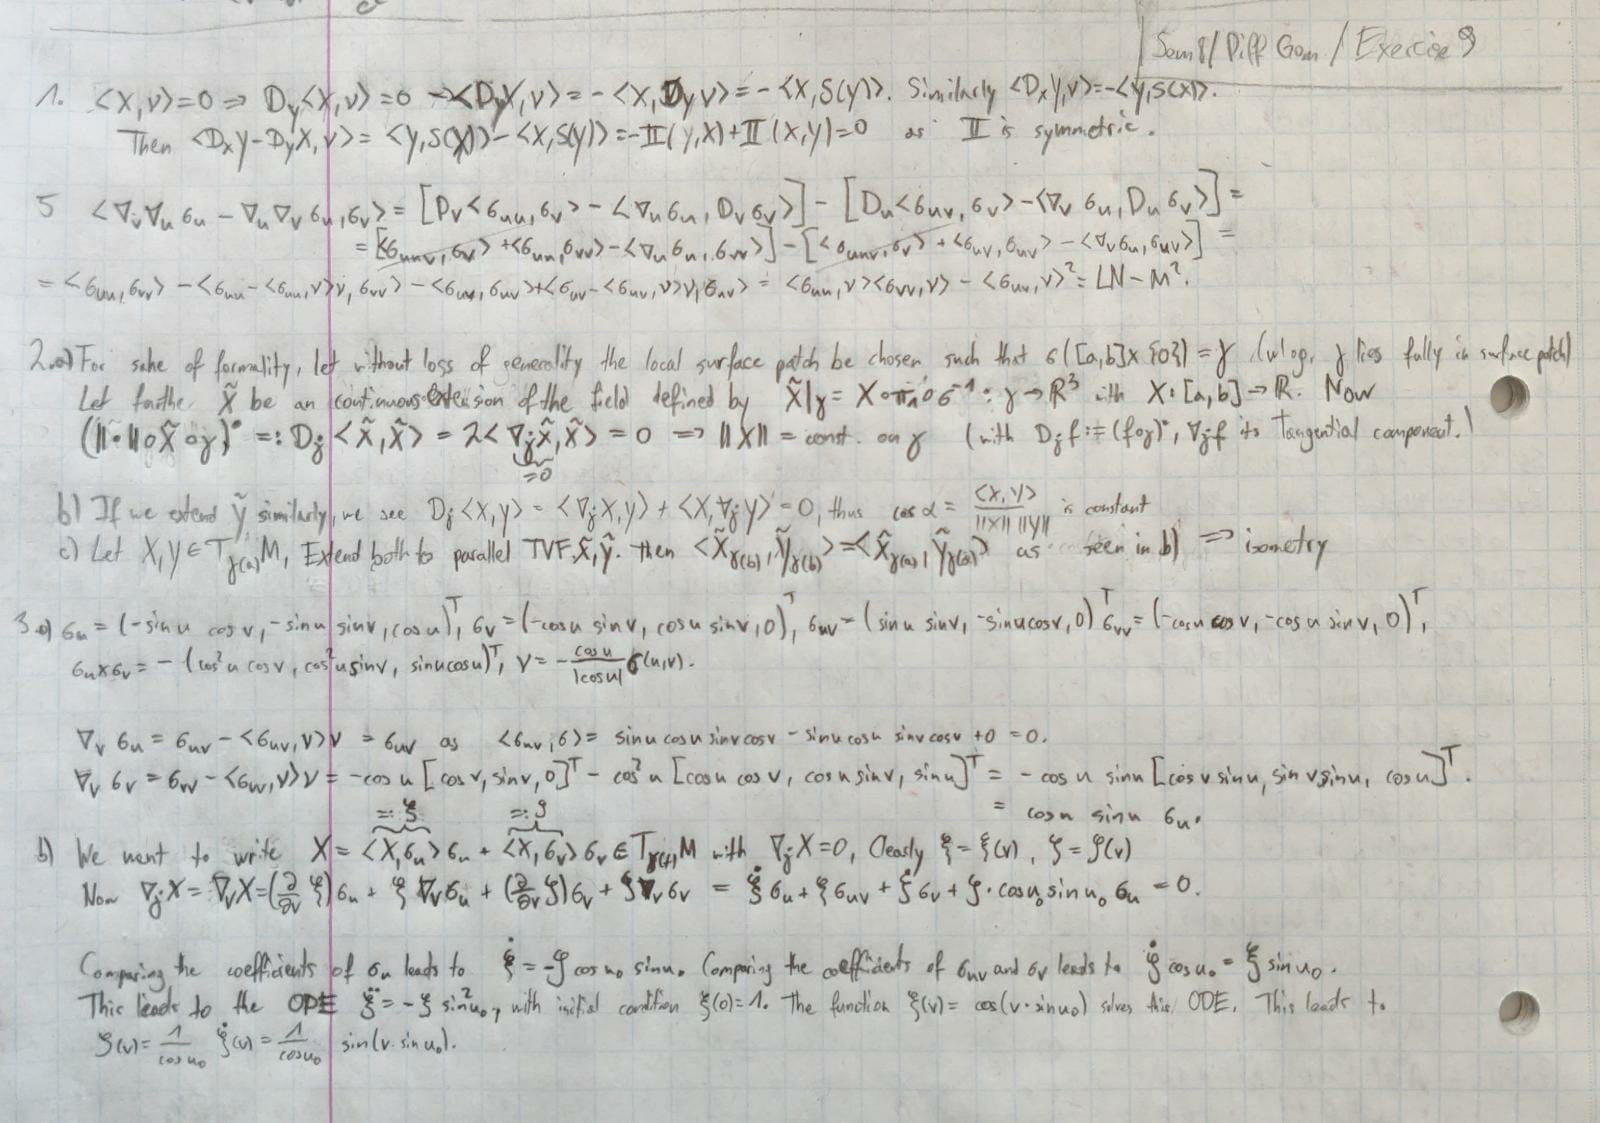 Sem 8/Diff Geom/Exercise 9
1. ⟨X,ν⟩=0 ⇒ D_Y⟨X,ν⟩=0 → ⟨D_Y X,ν⟩=-⟨X,D_Y ν⟩=-⟨X,S(Y)⟩. Similarly ⟨D_X Y,ν⟩=-⟨Y,S(X)⟩.
Then ⟨D_X Y-D_Y X,ν⟩=⟨Y,S(X)⟩-⟨X,S(Y)⟩=-II(Y,X)+II(X,Y)=0 as II is symmetric.
5 ⟨∇_v∇_u σ_u - ∇_u∇_v σ_u, σ_v⟩=[D_v⟨σ_uu,σ_v⟩-⟨∇_u σ_u, D_v σ_v⟩]-[D_u⟨σ_uv,σ_v⟩-⟨∇_v σ_u, D_u σ_v⟩]=
=[⟨σ_uuv,σ_v⟩+⟨σ_uu,σ_vv⟩-⟨∇_u σ_u,σ_vv⟩]-[⟨σ_uuv,σ_v⟩+⟨σ_uv,σ_uv⟩-⟨∇_v σ_u,σ_uv⟩]=
=⟨σ_uu,σ_vv⟩-⟨σ_uu-⟨σ_uu,ν⟩ν,σ_vv⟩-⟨σ_uv,σ_uv⟩+⟨σ_uv-⟨σ_uv,ν⟩ν,σ_uv⟩=⟨σ_uu,ν⟩⟨σ_vv,ν⟩-⟨σ_uv,ν⟩²=LN-M².
2.a) For sake of formality, let without loss of generality the local surface patch be chosen such that σ([a,b]x{0})=γ (wlog. γ lies fully in surface patch)
Let further X̃ be an continuous extension of the field defined by X̃|γ = X∘π₁∘σ⁻¹: γ→ℝ³ with X:[a,b]→ℝ. Now
(||·||∘X̃∘γ)˙ =: D_γ̇⟨X̃,X̃⟩ = 2⟨∇_γ̇ X̃,X̃⟩=0 ⇒ ||X|| = const. on γ (with D_γ̇ f:=(f∘γ)˙, ∇_γ̇ f its Tangential component.)
=0
b) If we extend Ỹ similarly, we see D_γ̇⟨X,Y⟩=⟨∇_γ̇ X,Y⟩+⟨X,∇_γ̇ Y⟩=0, thus cos α = ⟨X,Y⟩/(||X|| ||Y||) is constant
c) Let X,Y∈T_γ(a)M, Extend both to parallel TVF X̃,Ỹ. Then ⟨X̃_γ(b),Ỹ_γ(b)⟩=⟨X̃_γ(a),Ỹ_γ(a)⟩ as seen in b) ⇒ isometry
3.a) σ_u=(-sinu cosv,-sinu sinv,cosu)ᵀ, σ_v=(-cosu sinv, cosu sinv,0)ᵀ, σ_uv=(sinu sinv,-sinucosv,0)ᵀ σ_vv=(-cosu cosv,-cosu sinv,0)ᵀ,
σ_u×σ_v=-(cos²u cosv, cos²usinv, sinucosu)ᵀ, ν=-cosu/|cosu| σ(u,v).
∇_v σ_u = σ_uv-⟨σ_uv,ν⟩ν = σ_uv as ⟨σ_uv,σ⟩= sinu cosu sinv cosv - sinu cosu sinv cosv +0 =0.
∇_v σ_v = σ_vv-⟨σ_vv,ν⟩ν = -cosu[cosv,sinv,0]ᵀ - cos²u[cosu cosv, cosu sinv, sinu]ᵀ = -cosu sinu[cosv sinu, sinv sinu, cosu]ᵀ.
= cosu sinu σ_u.
=:ξ =:ζ
b) We want to write X=⟨X,σ_u⟩σ_u+⟨X,σ_v⟩σ_v∈T_γ(t)M with ∇_γ̇ X=0, Clearly ξ=ξ(v), ζ=ζ(v)
Now ∇_γ̇ X=∇_v X=(∂/∂v ξ)σ_u+ξ∇_v σ_u+(∂/∂v ζ)σ_v+ζ∇_v σ_v = ξ̇σ_u+ξσ_uv+ζ̇σ_v+ζ·cosu₀sinu₀ σ_u =0.
Comparing the coefficients of σ_u leads to ξ̇=-ζ cosu₀ sinu₀ Comparing the coefficients of σ_uv and σ_v leads to ζ̇cosu₀=ξ sinu₀.
This leads to the ODE ξ̈=-ξ sin²u₀, with initial condition ξ(0)=1. The function ξ(v)=cos(v·sinu₀) solves this ODE. This leads to
ζ(v)=1/cosu₀ ξ̇(v)=1/cosu₀ sin(v·sinu₀).